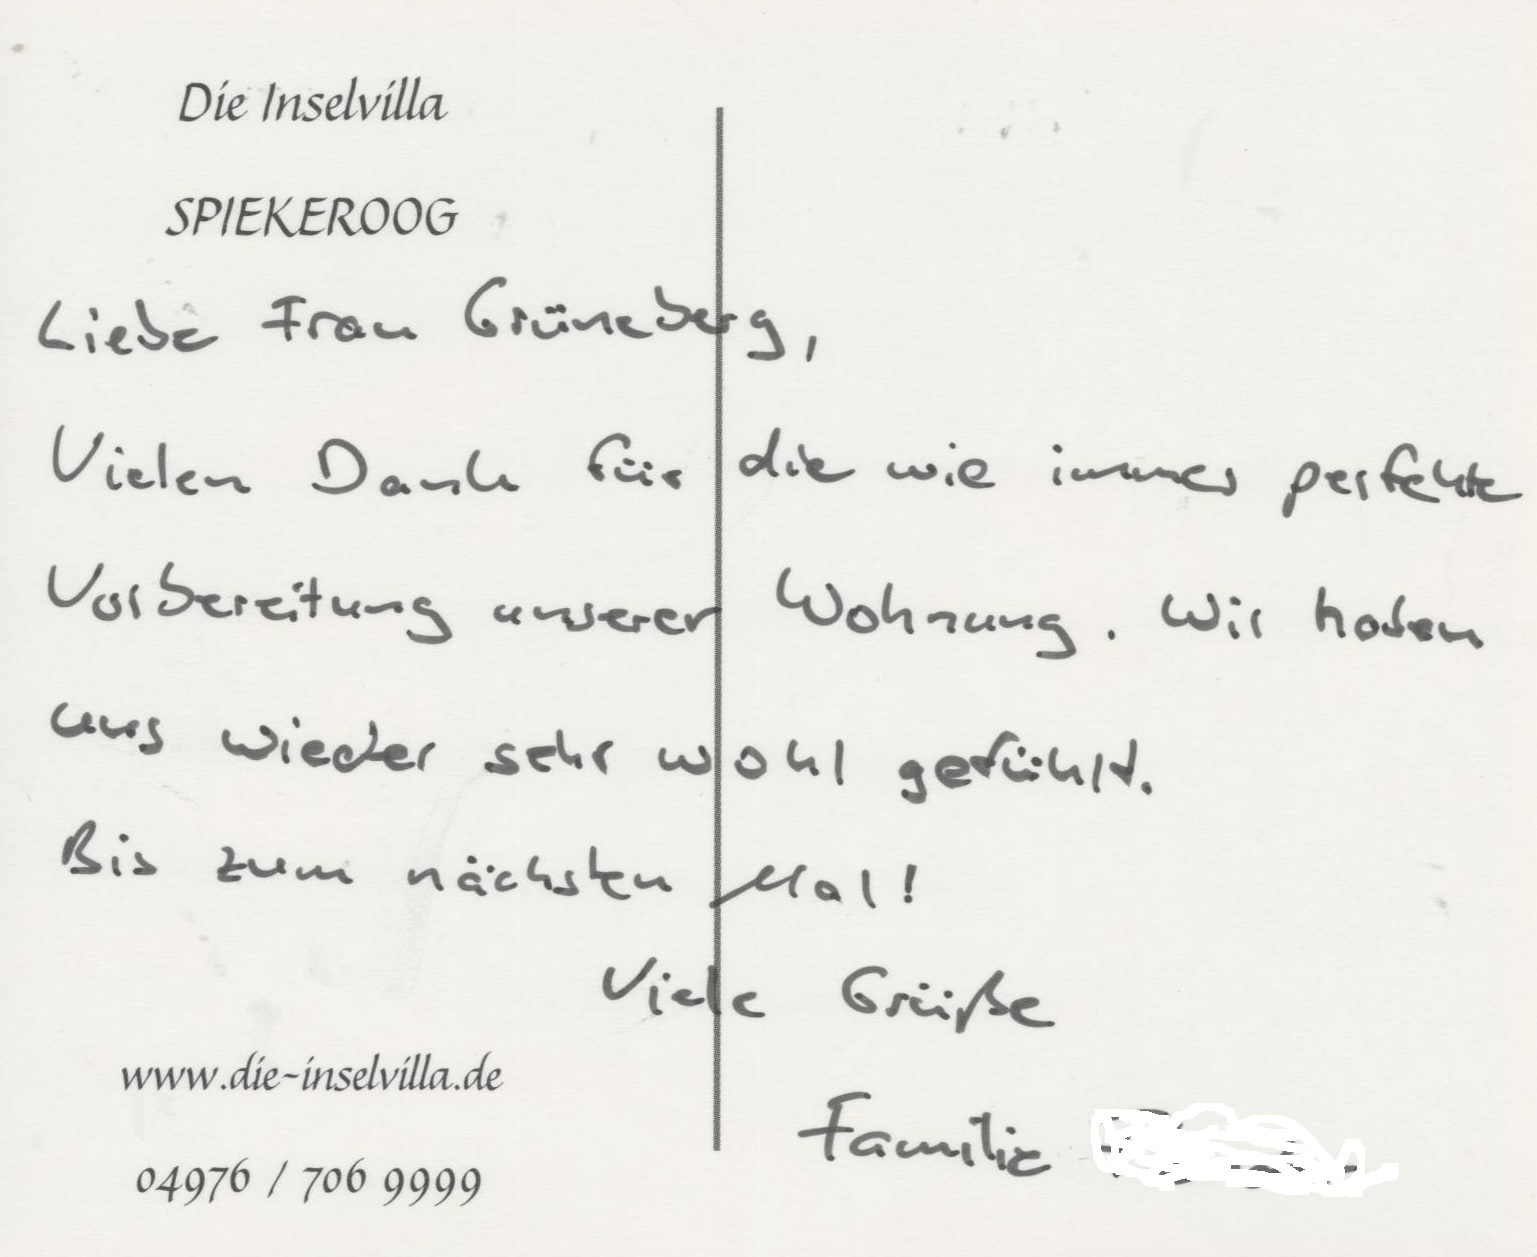 Die Inselvilla
SPIEKEROOG
Liebe Frau Grüneberg,
Vielen Dank für die wie immer perfekte
Vorbereitung unserer Wohnung. Wir haben
uns wieder sehr wohl gefühlt.
Bis zum nächsten Mal!
Viele Grüße
Familie
www.die-inselvilla.de
04976 / 706 9999